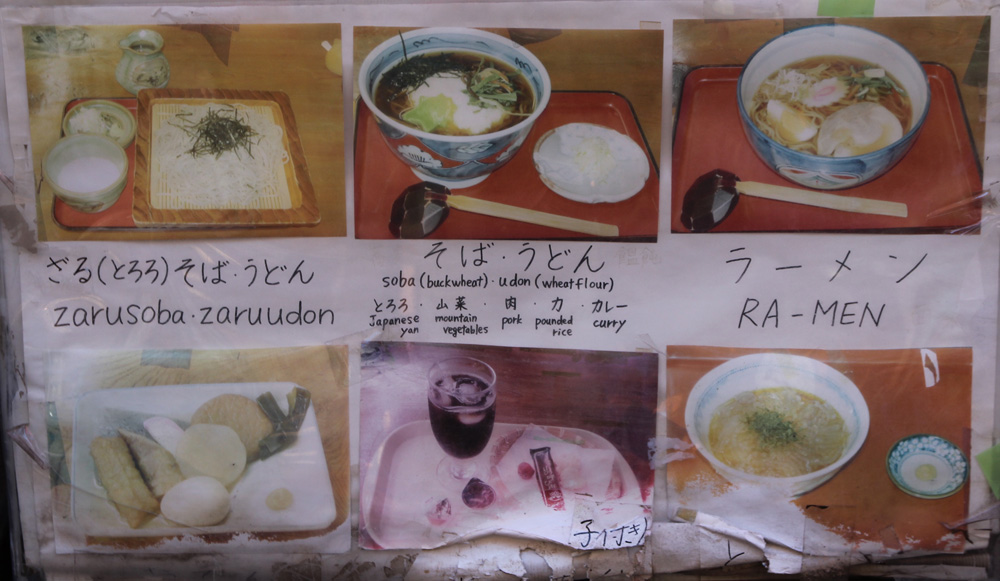 ざる(とろろ)そば・うどん
zarusoba・zaruudon
そば・うどん
soba (buckwheat)・udon (wheatflour)
とろろ・山菜・肉・力・カレー
Japanese mountain pork pounded curry
yan vegetables rice
ラーメン
RA-MEN